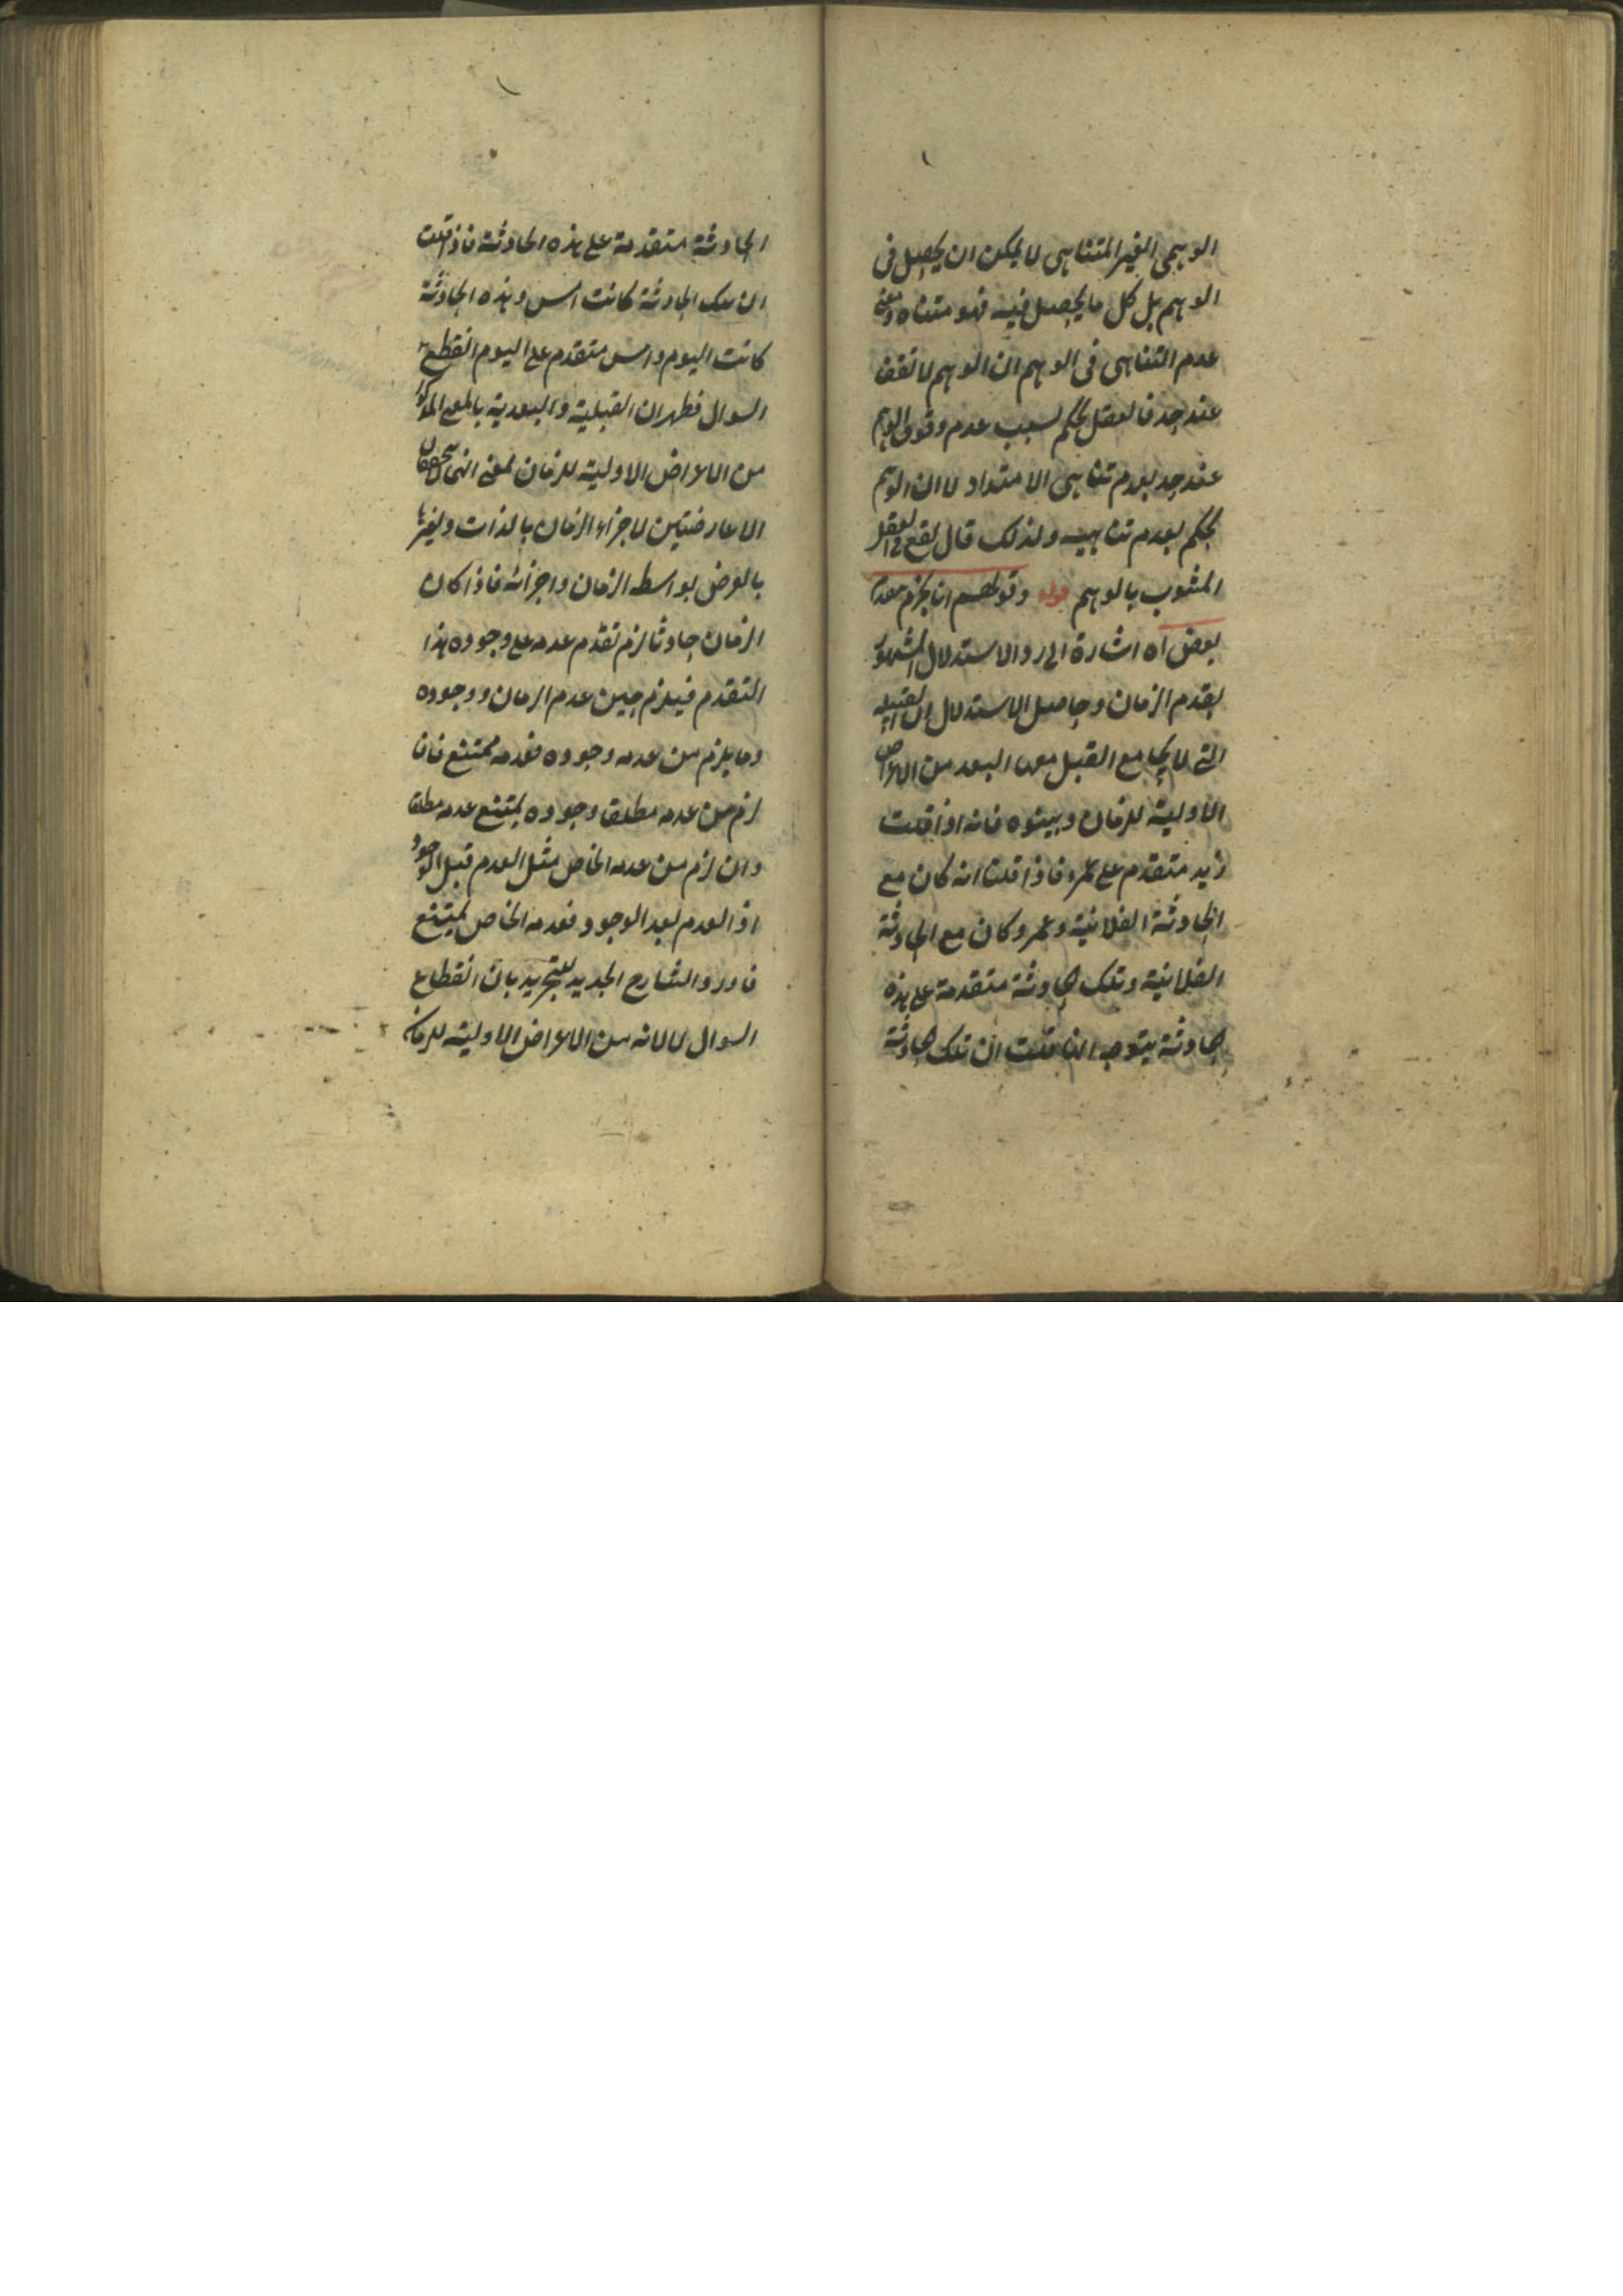 الوهمي الغير المتناهي لا يمكن ان يحصل في
الوهم بل كل ما يحصل فيه فهو متناه ومعنى
عدم التناهي في الوهم ان الوهم لا تقف
عند حد فالعقل يحكم بسبب عدم وقوف الوهم
عند حد بعدم تناهي الامتداد لا ان الوهم
يحكم بعدم تناهيه ولذلك قال يقع في العقل
المشوب بالوهم قوله وقولهم انا نجزم بتقدم
بعض اه اشارة الى رد الاستدلال المشهور
بقدم الزمان وحاصل الاستدلال ان القبلية
التي لا يجامع القبل معها البعد من الاعراض
الاولية للزمان وبينوه فانه اذا قلت
زيد متقدم على عمرو فاذا قلت انه كان مع
الحادثة الفلانية وعمرو كان مع الحادثة
الفلانية وتلك حادثة متقدمة على هذه
حادثة يتوجه انا قلت ان تلك حادثة
الحادثة متقدمة على هذه الحادثة فاذا قلت
ان تلك الحادثة كانت امس وهذه الحادثة
كانت اليوم وامس متقدم على اليوم انقطع
السوال فظهر ان القبلية والبعدية بالمعنى المذكور
من الاعراض الاولية للزمان بمعنى انهما
العارضتين لاجزاء الزمان بالذات ولغيرها
بالعرض بواسطه الزمان واجزائه فاذا كان
الزمان حادثا لزم تقدم عدمه على وجوده هذا
التقدم فيلزم حين عدم الزمان ووجوده
وما يلزم من عدمه وجوده فعدمه ممتنع فان
لزم من عدمه مطلقا وجوده يمتنع عدمه مطلقا
وان لزم من عدمه الخاص مثل العدم قبل الوجود
او العدم بعد الوجود فعدمه الخاص يمتنع
فاورد الشارح الجديد للتجريد بان انقطاع
السوال لا لانه من الاعراض الاولية للزمان